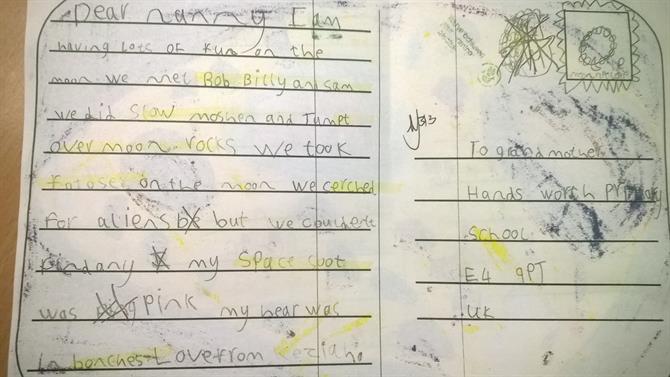 Dear nanny I am
having lots of fun on the
moon we met Bob Billy an sam
we did slow moshen and Jumpt
over moon rocks we took
fotoser on the moon we cerched
for aliens but we couldent
find any my space soot
was pink my hear was
in bonches Love from
To grandmother
Hands worth primary
school
E4 9PT
UK